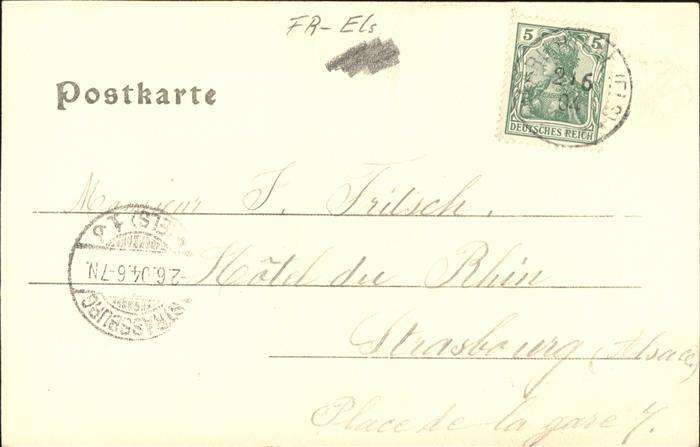 FR-Els
Postkarte
5 5
DEUTSCHES REICH
2 6
04
(ELS)
Monsieur J. Fritsch.
Hôtel du Rhin
Strasbourg (Alsace)
Place de la gare 7.
STRASSBURG (ELS) 1 b
-2.6.04.6-7N.